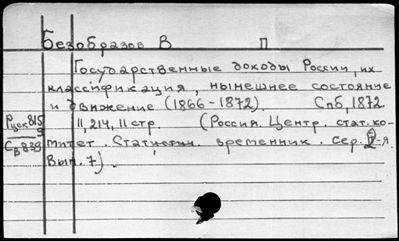 Безобразов В П
Государственные доходы России, их
классификация, нынешнее состояние
и движение (1866-1872). Спб, 1872.
Русск 815 II, 214, II стр. (Россия. Центр. стат. ко-
9
Св 838 митет. Статистич. временник. сер. 2-я.
Вып. 7).